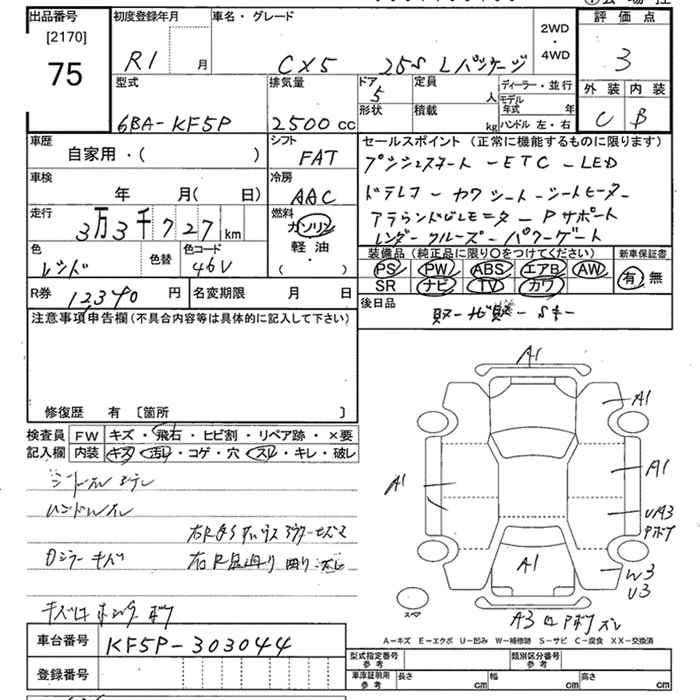 出品番号 初度登録年月 車名・グレード 評価点
[2170] 2WD
75 R1 月 CX5 25S Lパッケージ ・ 3
4WD
型式 排気量 ドア 定員 ディーラー・並行 外装 内装
5 人 モデル年式 年
6BA-KF5P 2500cc 形状 積載 kg ハンドル 左・右 C B
車歴 シフト セールスポイント (正常に機能するものに限ります)
自家用・( ) FAT プッシュスタート-ETC-LED
車検 冷房 ドラレコ-カワシート-シートヒーター
年 月( 日) AAC アラウンドビューモニター-Pサポート
走行 燃料 レーダークルーズ-パワーゲート
3万3千727km ガソリン
色 色替 色コード 軽油 装備品 (純正品に限り○をつけてください) 新車保証書
レッド 46V ( ・ ) PS PW ABS エアB AW 有・無
SR ナビ TV カワ
R券 12390円 名変期限 月 日 後日品
注意事項申告欄 (不具合内容等は具体的に記入して下さい) 取-ナビ取-Sキー
修復歴 有 [箇所 ]
A1
A1
A1
A1
UA3
Pボケ
A1
W3
U3
スペア
検査員 FW キズ・飛石・ヒビ割・リペア跡・×要
記入欄 内装 キズ・汚レ・コゲ・穴・スレ・キレ・破レ
ハンドルスレ
A3 Pボケ ズレ
A-キズ E-エクボ U-凹み W-補修跡 S-サビ C-腐食 XX-交換済
車台番号 KF5P-303044
型式指定番号 参考 類別区分番号 参考
登録番号 車庫証明用 参考 長さ cm 幅 cm 高さ cm